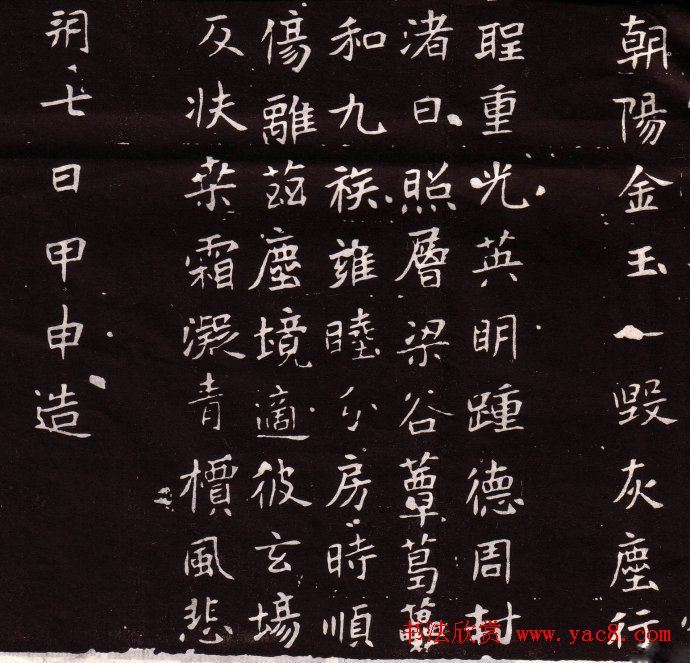 朝陽金玉一毀灰塵行
聖重光英明踵德周村
渚日照層梁谷蕈葛蘽
和九族雍睦分房時順
傷離茲塵境適彼玄場
反袂業霜凝青檟風悲
朔七日甲申造
书法欣赏 www.yac8.com